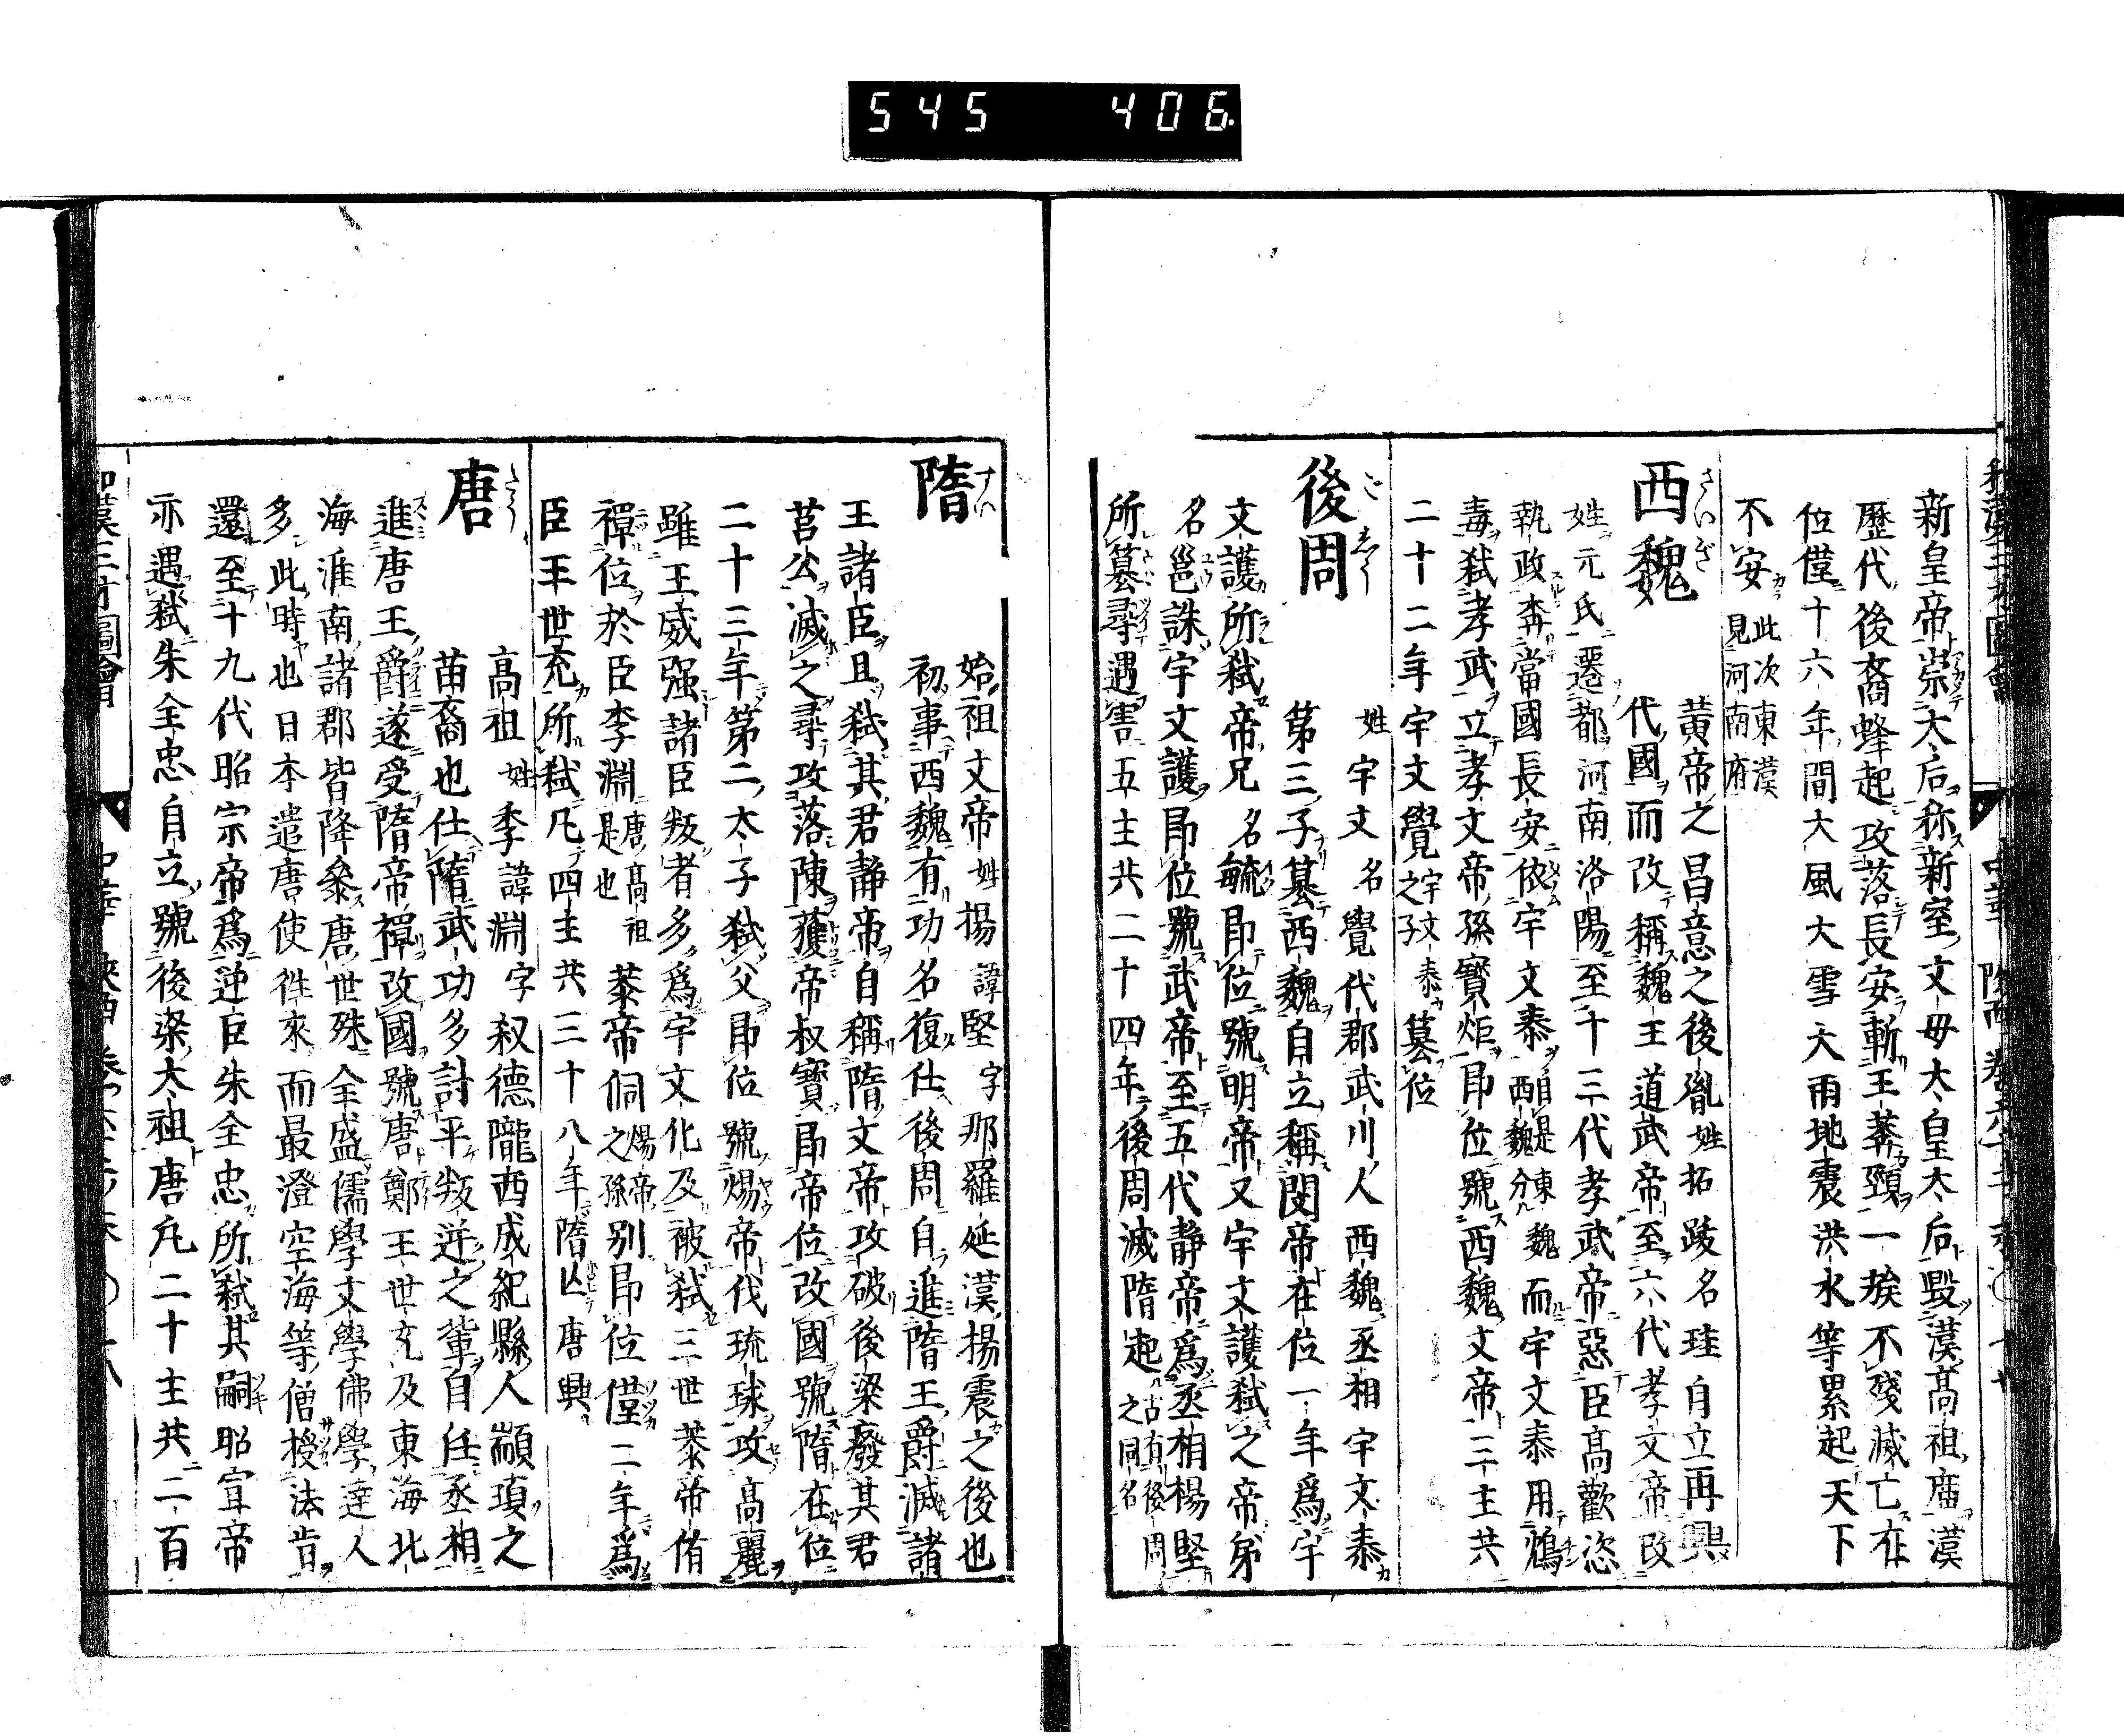 545 406
新皇帝崇大后称新室文母太皇太后毀漢高祖廣漢
歷代後裔蜂起攻落長安斬王莽頸一族不殘滅亡在
位僅十六年間大風大雪大雨地震洪水等累起天下
不安此次東漢見河南府
西魏
黃帝之昌意之後胤姓拓跋名珪自立再興
代國而改稱魏王道武帝至六代孝文帝改
姓元氏遷都河南洛陽至十三代孝武帝惡臣高歡恣
執政奔當國長安依宇文泰自是東魏西魏分而宇文泰用鴆
毒弒孝武立孝文帝孫寶炬即位號西魏文帝三主共
二十二年宇文覺宇文泰之子簒位
後周
姓宇文名覺代郡武川人西魏丞相宇文泰
第三子簒西魏自立稱閔帝在位一年爲宇
文護所弒帝兄名毓即位號明帝又宇文護弒之帝弟
名邕誅宇文護即位號武帝至五代靜帝爲丞相楊堅
所簒尋遇害五主共二十四年後周滅隋起古有後周之同名
隋
始祖文帝姓揚諱堅字那羅延漢揚震之後也
初事西魏有功名復仕後周自進隋王爵滅諸
王諸臣且弒其君靜帝自稱隋文帝攻破後梁廢其君
莒公滅之尋攻落陳獲帝叔寶即帝位改國號隋在位
二十三年第二太子弒父即位號煬帝伐琉球攻高麗
雖王威强諸臣叛者多爲宇文化及被弒三世恭帝侑
禪位於臣李淵唐高祖是也恭帝侗煬帝之孫別即位僅二年爲
臣王世充所弒凡四主共三十八年隋亾唐興
唐
高祖姓李諱淵字叔德隴西成紀縣人顓頊之
苗裔也仕隋武功多計平叛逆之輩自任丞相
進唐王爵遂受隋帝禪改國號唐鄭王世充及東海北
海淮南諸郡皆降參唐世殊全盛儒學文學佛學達人
多此時也日本遣唐使徃來而最澄空海等僧授法肯
還至十九代昭宗帝爲逆臣朱全忠所弒其嗣昭宣帝
亦遇弒朱全忠自立號後梁太祖唐凡二十主共二百